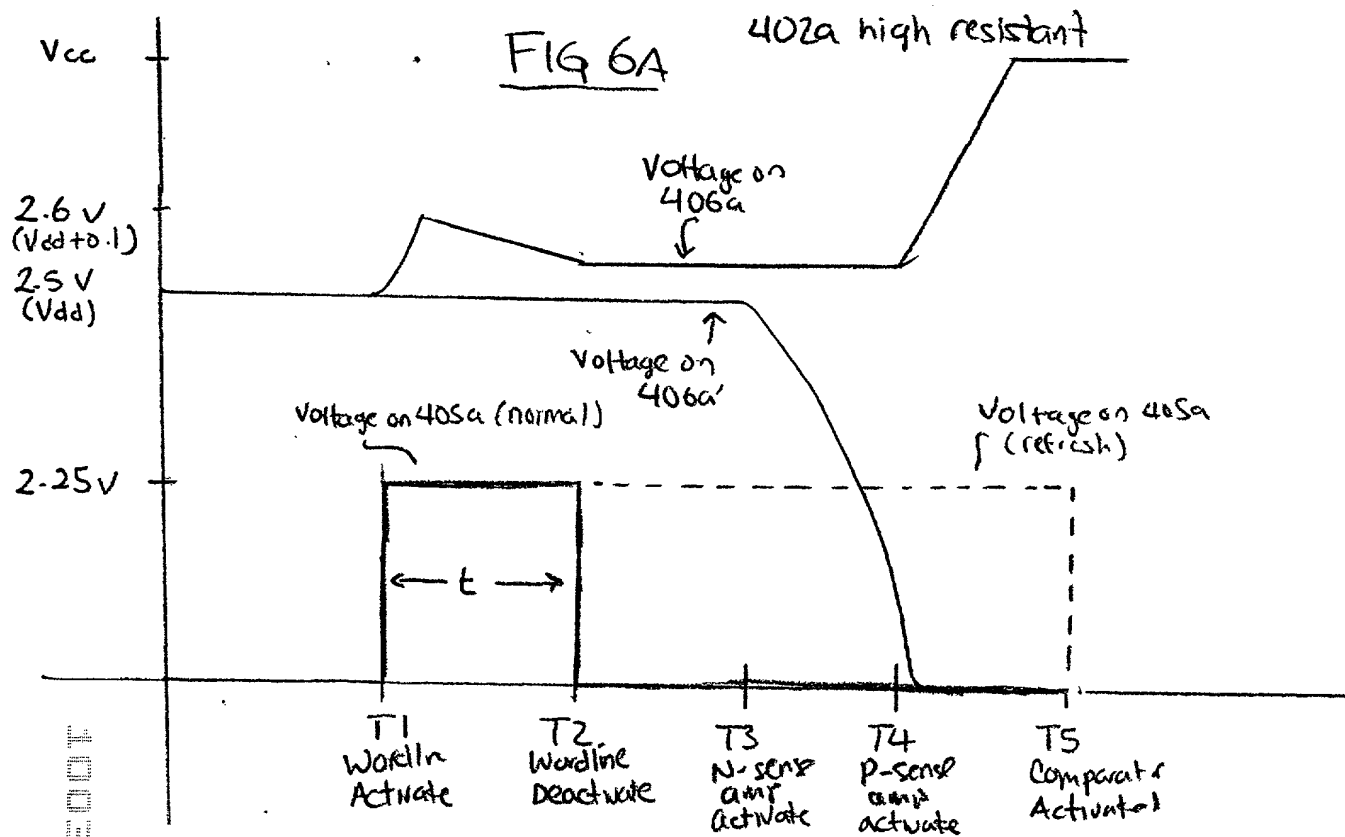 402a high resistant
FIG 6A
Vcc
2.6 V
(Vdd+0.1)
2.5 V
(Vdd)
2.25V
Voltage on
406a
Voltage on
406a'
Voltage on 405a (normal)
Voltage on 405a
(refresh)
t
T1
Wordln
Activate
T2
Wordline
Deactivate
T3
N-sense
amp
activate
T4
P-sense
amp
activate
T5
Comparatr
Activated